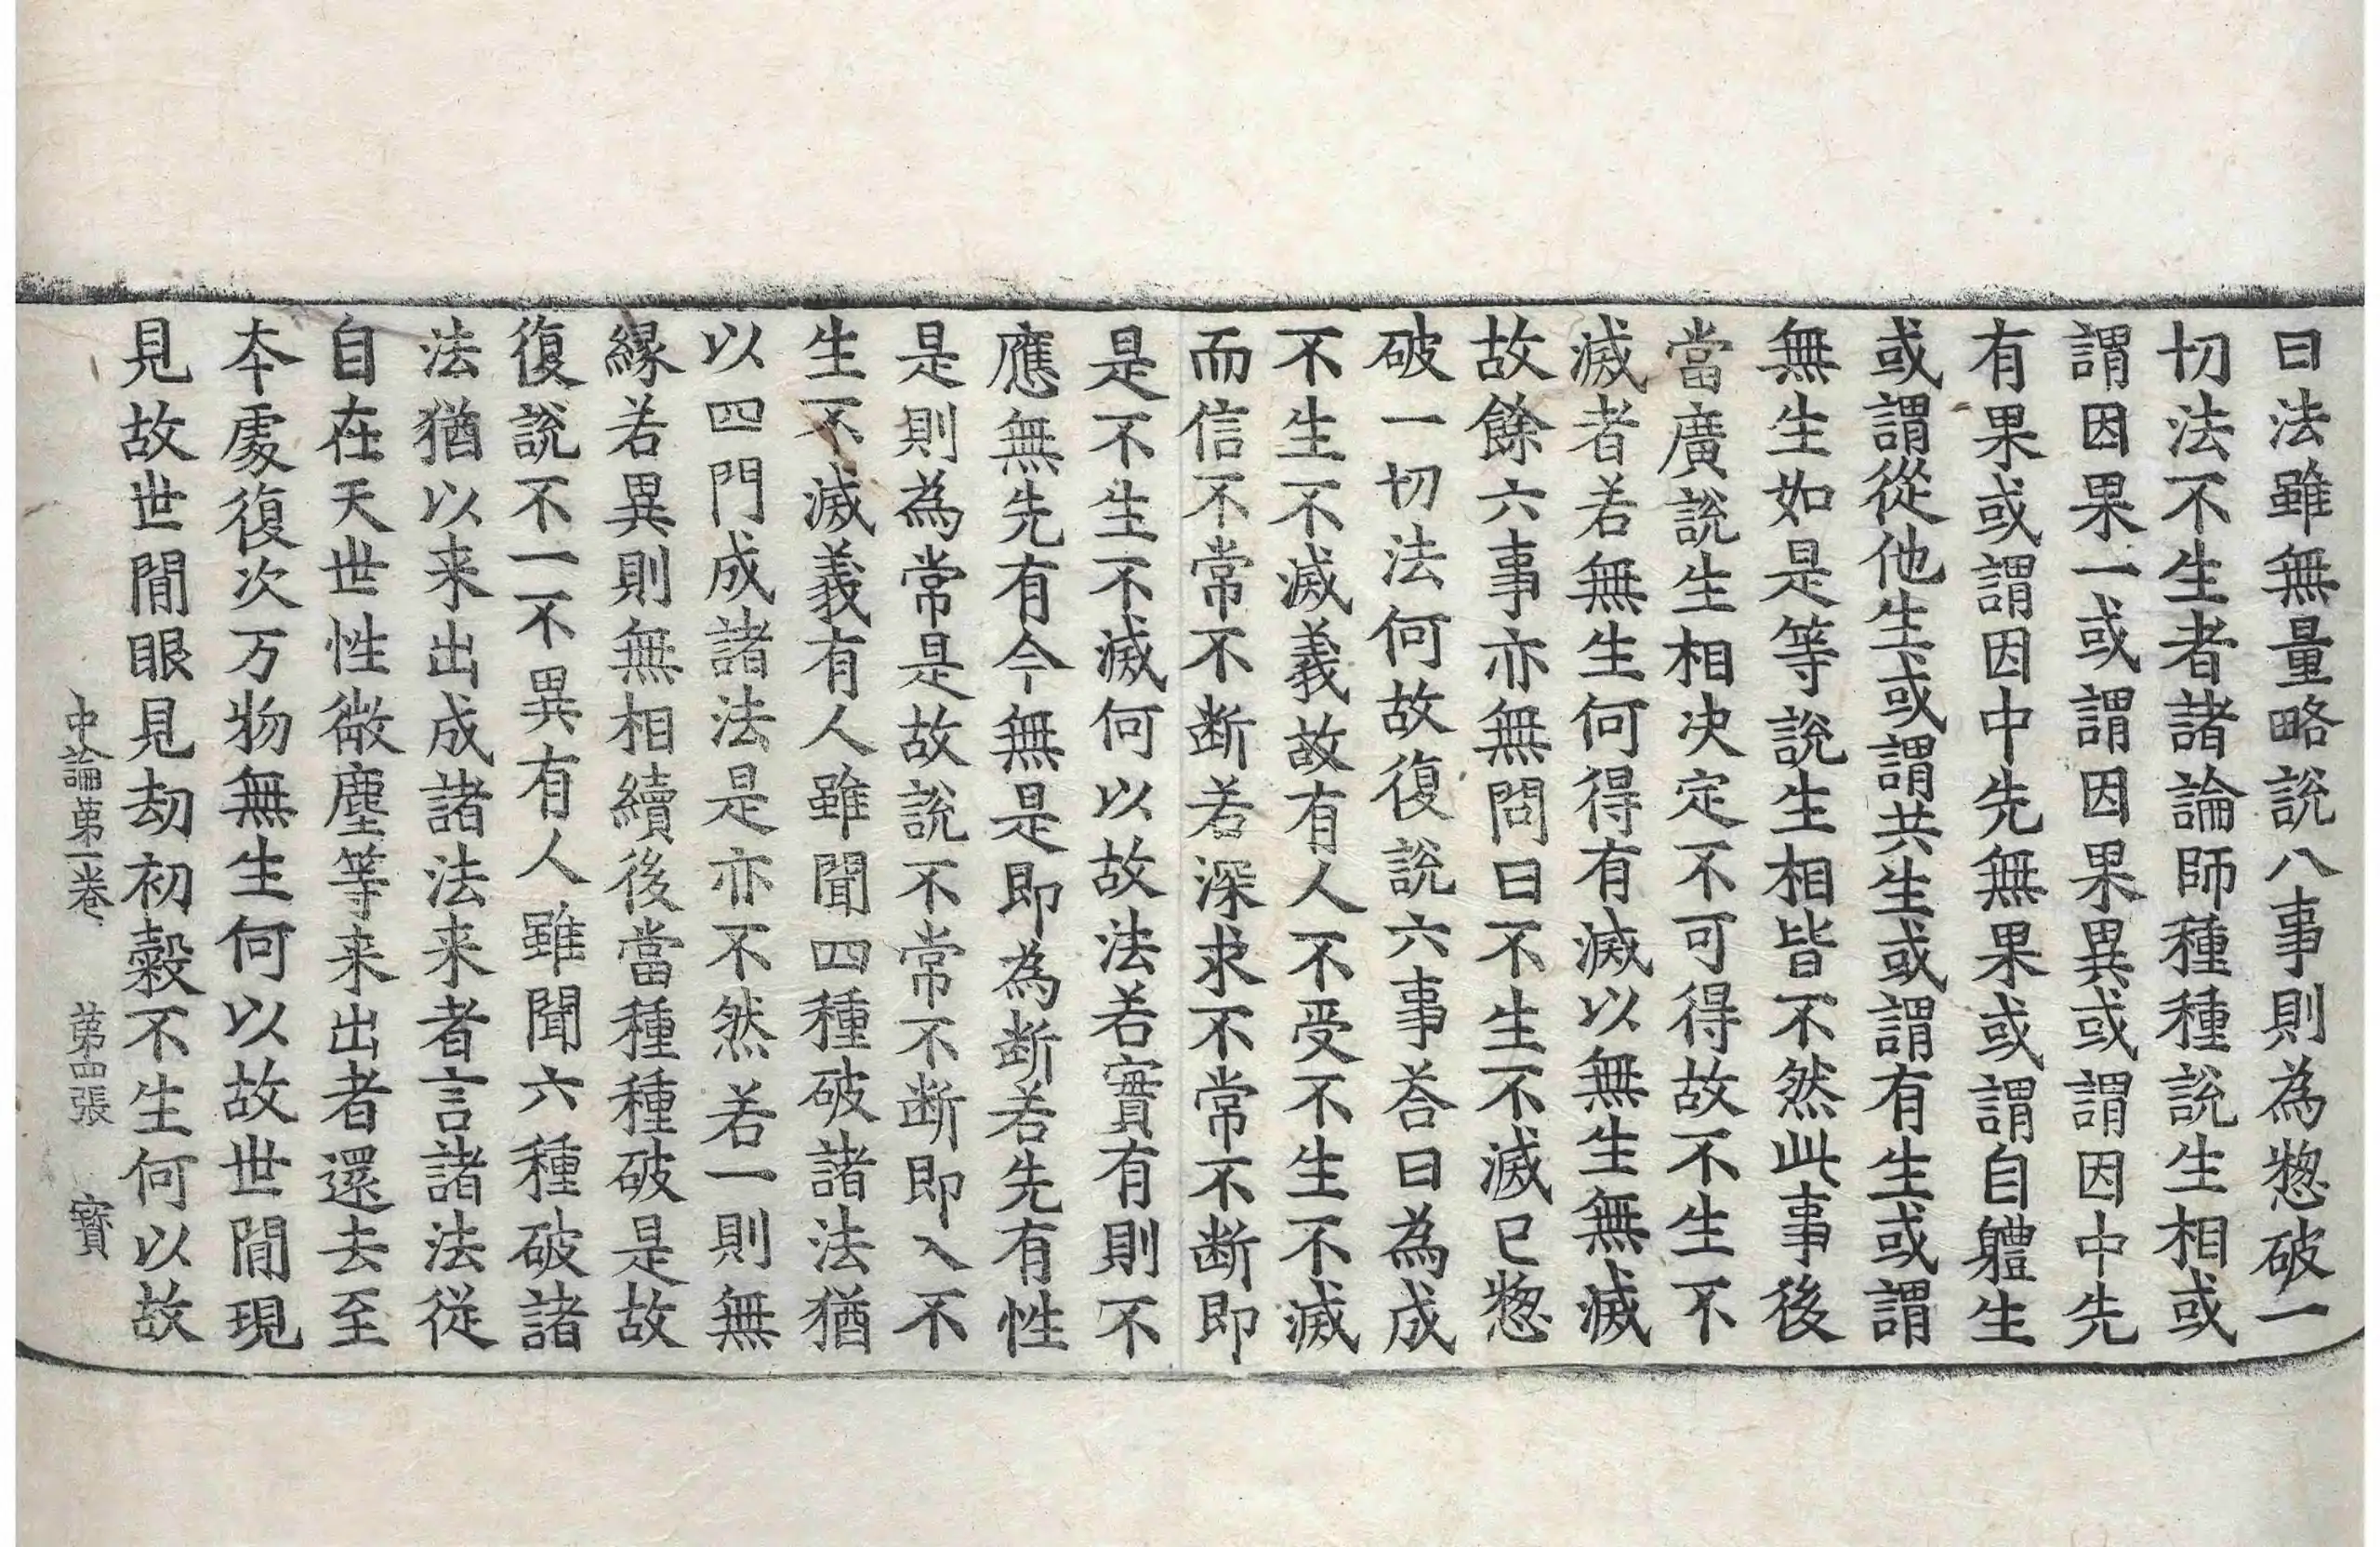 曰法雖無量略說八事則為惣破一
切法不生者諸論師種種說生相或
謂因果一或謂因果異或謂因中先
有果或謂因中先無果或謂自軆生
或謂從他生或謂共生或謂有生或謂
無生如是等說生相皆不然此事後
當廣說生相决定不可得故不生不
滅者若無生何得有滅以無生無滅
故餘六事亦無問曰不生不滅已惣
破一切法何故復說六事荅曰為成
不生不滅義故有人不受不生不滅
而信不常不断若深求不常不断即
是不生不滅何以故法若實有則不
應無先有今無是即為断若先有性
是則為常是故說不常不断即入不
生不滅義有人雖聞四種破諸法猶
以四門成諸法是亦不然若一則無
緣若異則無相續後當種種破是故
復說不一不異有人雖聞六種破諸
法猶以来出成諸法来者言諸法從
自在天世性微塵等来出者還去至
本處復次万物無生何以故世間現
見故世間眼見劫初糓不生何以故
中論第一卷 第四張 寳